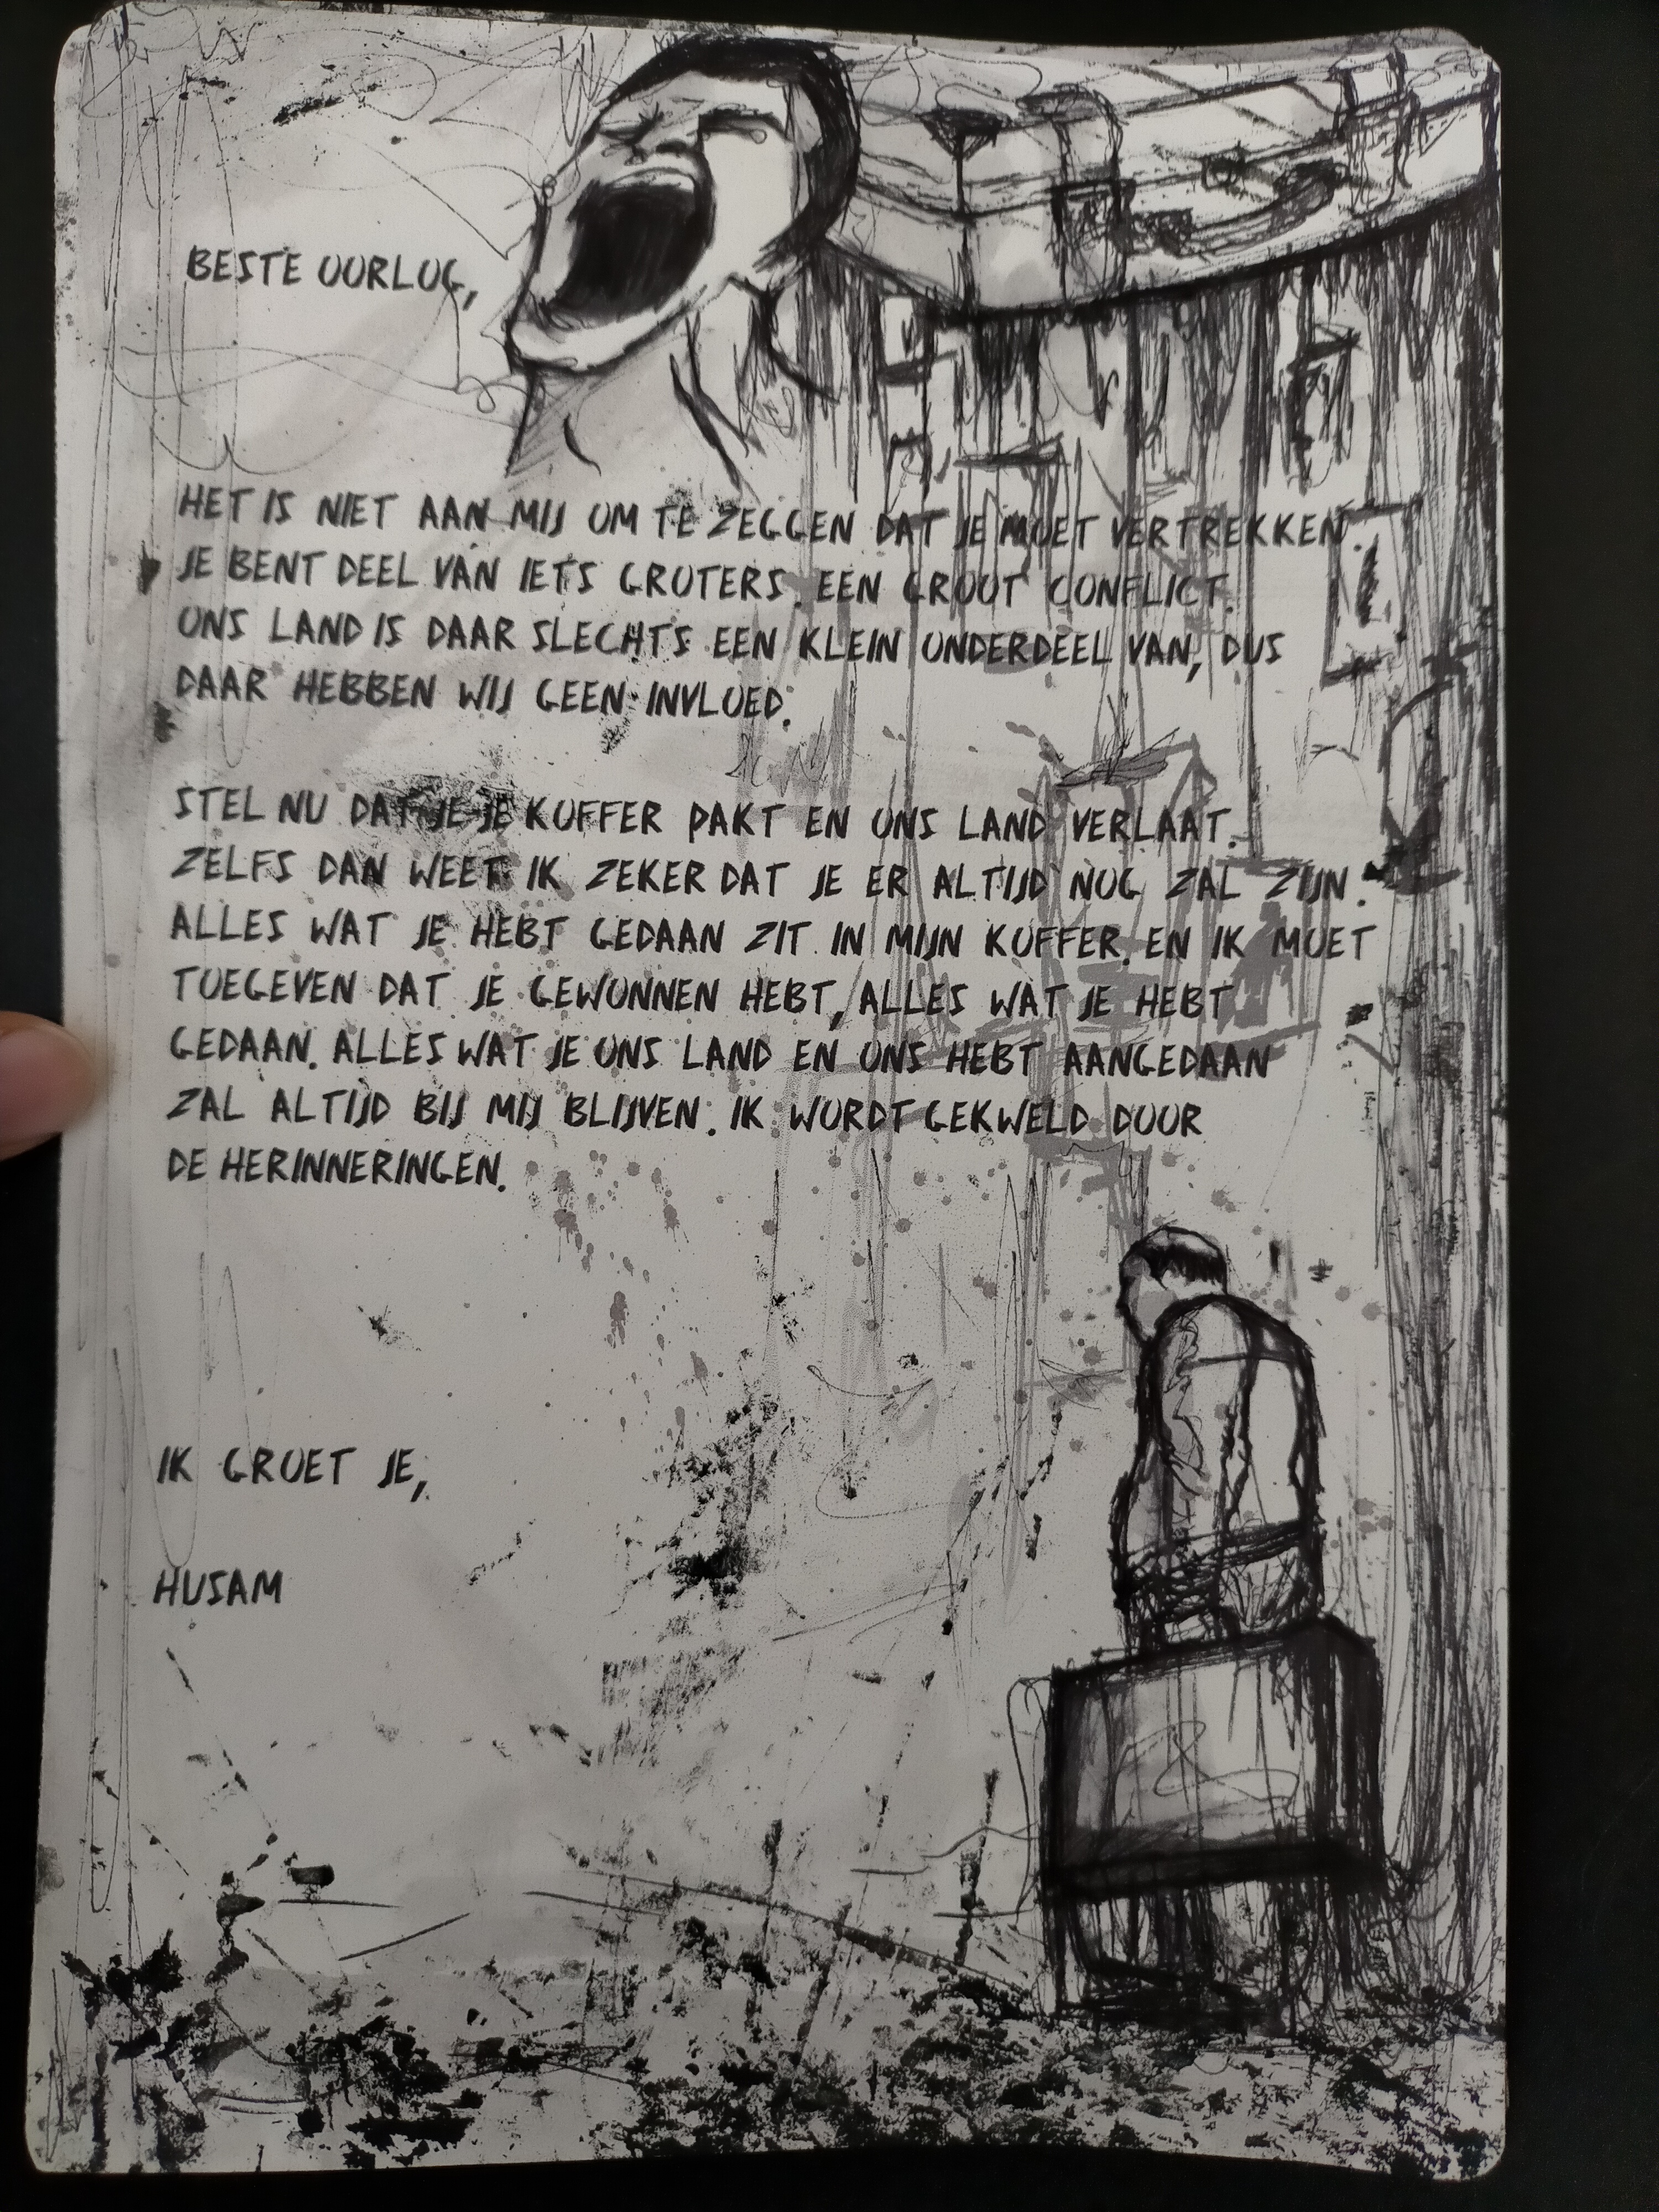 BESTE OORLOG,
HET IS NIET AAN MIJ OM TE ZEGGEN DAT JE MOET VERTREKKEN.
JE BENT DEEL VAN IETS GROTERS. EEN GROOT CONFLICT.
ONS LAND IS DAAR SLECHTS EEN KLEIN ONDERDEEL VAN, DUS
DAAR HEBBEN WIJ GEEN INVLOED.
STEL NU DAT JE JE KOFFER PAKT EN ONS LAND VERLAAT.
ZELFS DAN WEET IK ZEKER DAT JE ER ALTIJD NOG ZAL ZIJN.
ALLES WAT JE HEBT GEDAAN ZIT IN MIJN KOFFER. EN IK MOET
TOEGEVEN DAT JE GEWONNEN HEBT, ALLES WAT JE HEBT
GEDAAN. ALLES WAT JE ONS LAND EN ONS HEBT AANGEDAAN
ZAL ALTIJD BIJ MIJ BLIJVEN. IK WORDT GEKWELD DOOR
DE HERINNERINGEN.
IK GROET JE,
HUSAM